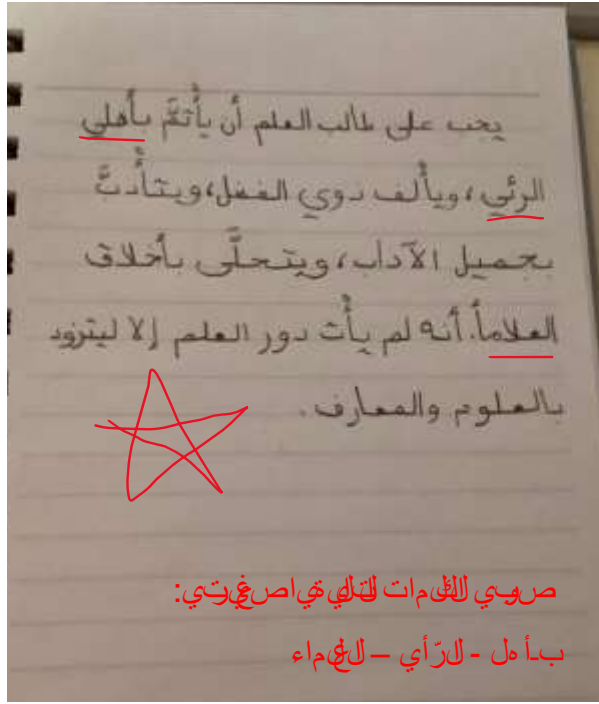 يجب على طالب العلم أن يأْتمَّ بأهلي
الرئي، ويألف دوي الفضل، ويتأَدبَّ
بجميل الآداب، ويتحلَّى بأخلاق
العلامأ. أنه لم يأْت دور العلم إلا ليتزود
بالعلوم والمعارف.
صوبي الكلمات التالية ياصغيرتي:
بـأهل - الرّأي – العلماء